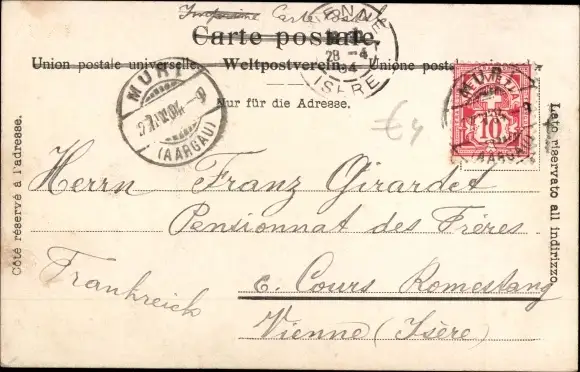 Carte postale.
Union postale universelle. Weltpostverein. Unione posta
Nur für die Adresse.
Côté réservé à l'adresse.
Lato riservato all indirizzo.
VIENNE
28 -4
04
ISÈRE
MURI
(AARGAU)
MURI
10
(AARGAU)
€4
Herrn Franz Girardet
Pensionnat des Frères.
6. Cours Romestang
Vienne (Isère)
Frankreich